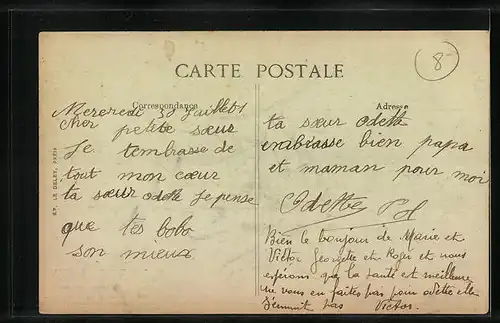 8
CARTE POSTALE
Correspondance
Adresse
Mercredi 30 Juillet
cher petite sœur
Je tembrasse de
tout mon cœur
ta sœur odette Je pense
que tes bobo
son mieux
ta sœur odette
enbrasse bien papa
et maman pour moi
Odette
Bien le bonjour de Marie et
Victor Georgette et Roger et nous
espérons que la santé est meilleure
ne vous en faites pas pour odette elle
s'ennuit pas Victor.
LE DELEY, PARIS